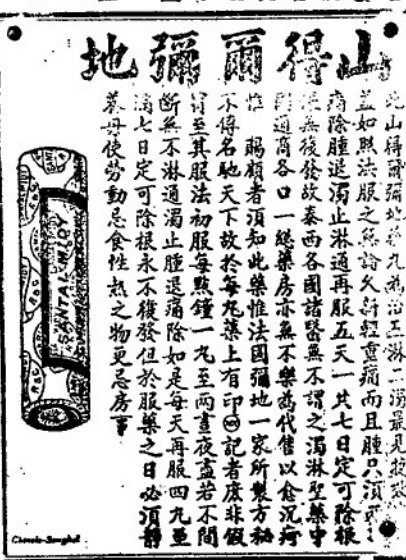 山得爾彌地
此山得爾彌地藥丸爲治五淋二濁最見
蓋如照法服之無論久許輕重痛而且腫只須
痛除腫退濁止淋通再服五天一共七日定可除根
無後發故泰西各國諸醫無不謂之濁淋聖藥中
通商各口一總藥房亦無不樂爲代售以愈沉疴
惟 賜顧者須知此藥惟法國彌地一家所製方秘
不傳名馳天下故於每丸藥上有印 記者庶非假
冒至其服法初服每點鐘一丸至兩晝夜盡若不間
斷無不淋通濁止腫退痛除如是每天再服四丸至
滿七日定可除根永不復發但於服藥之日必須靜
養毋使勞動忌食性熱之物更忌房事
SANTAL MIDY